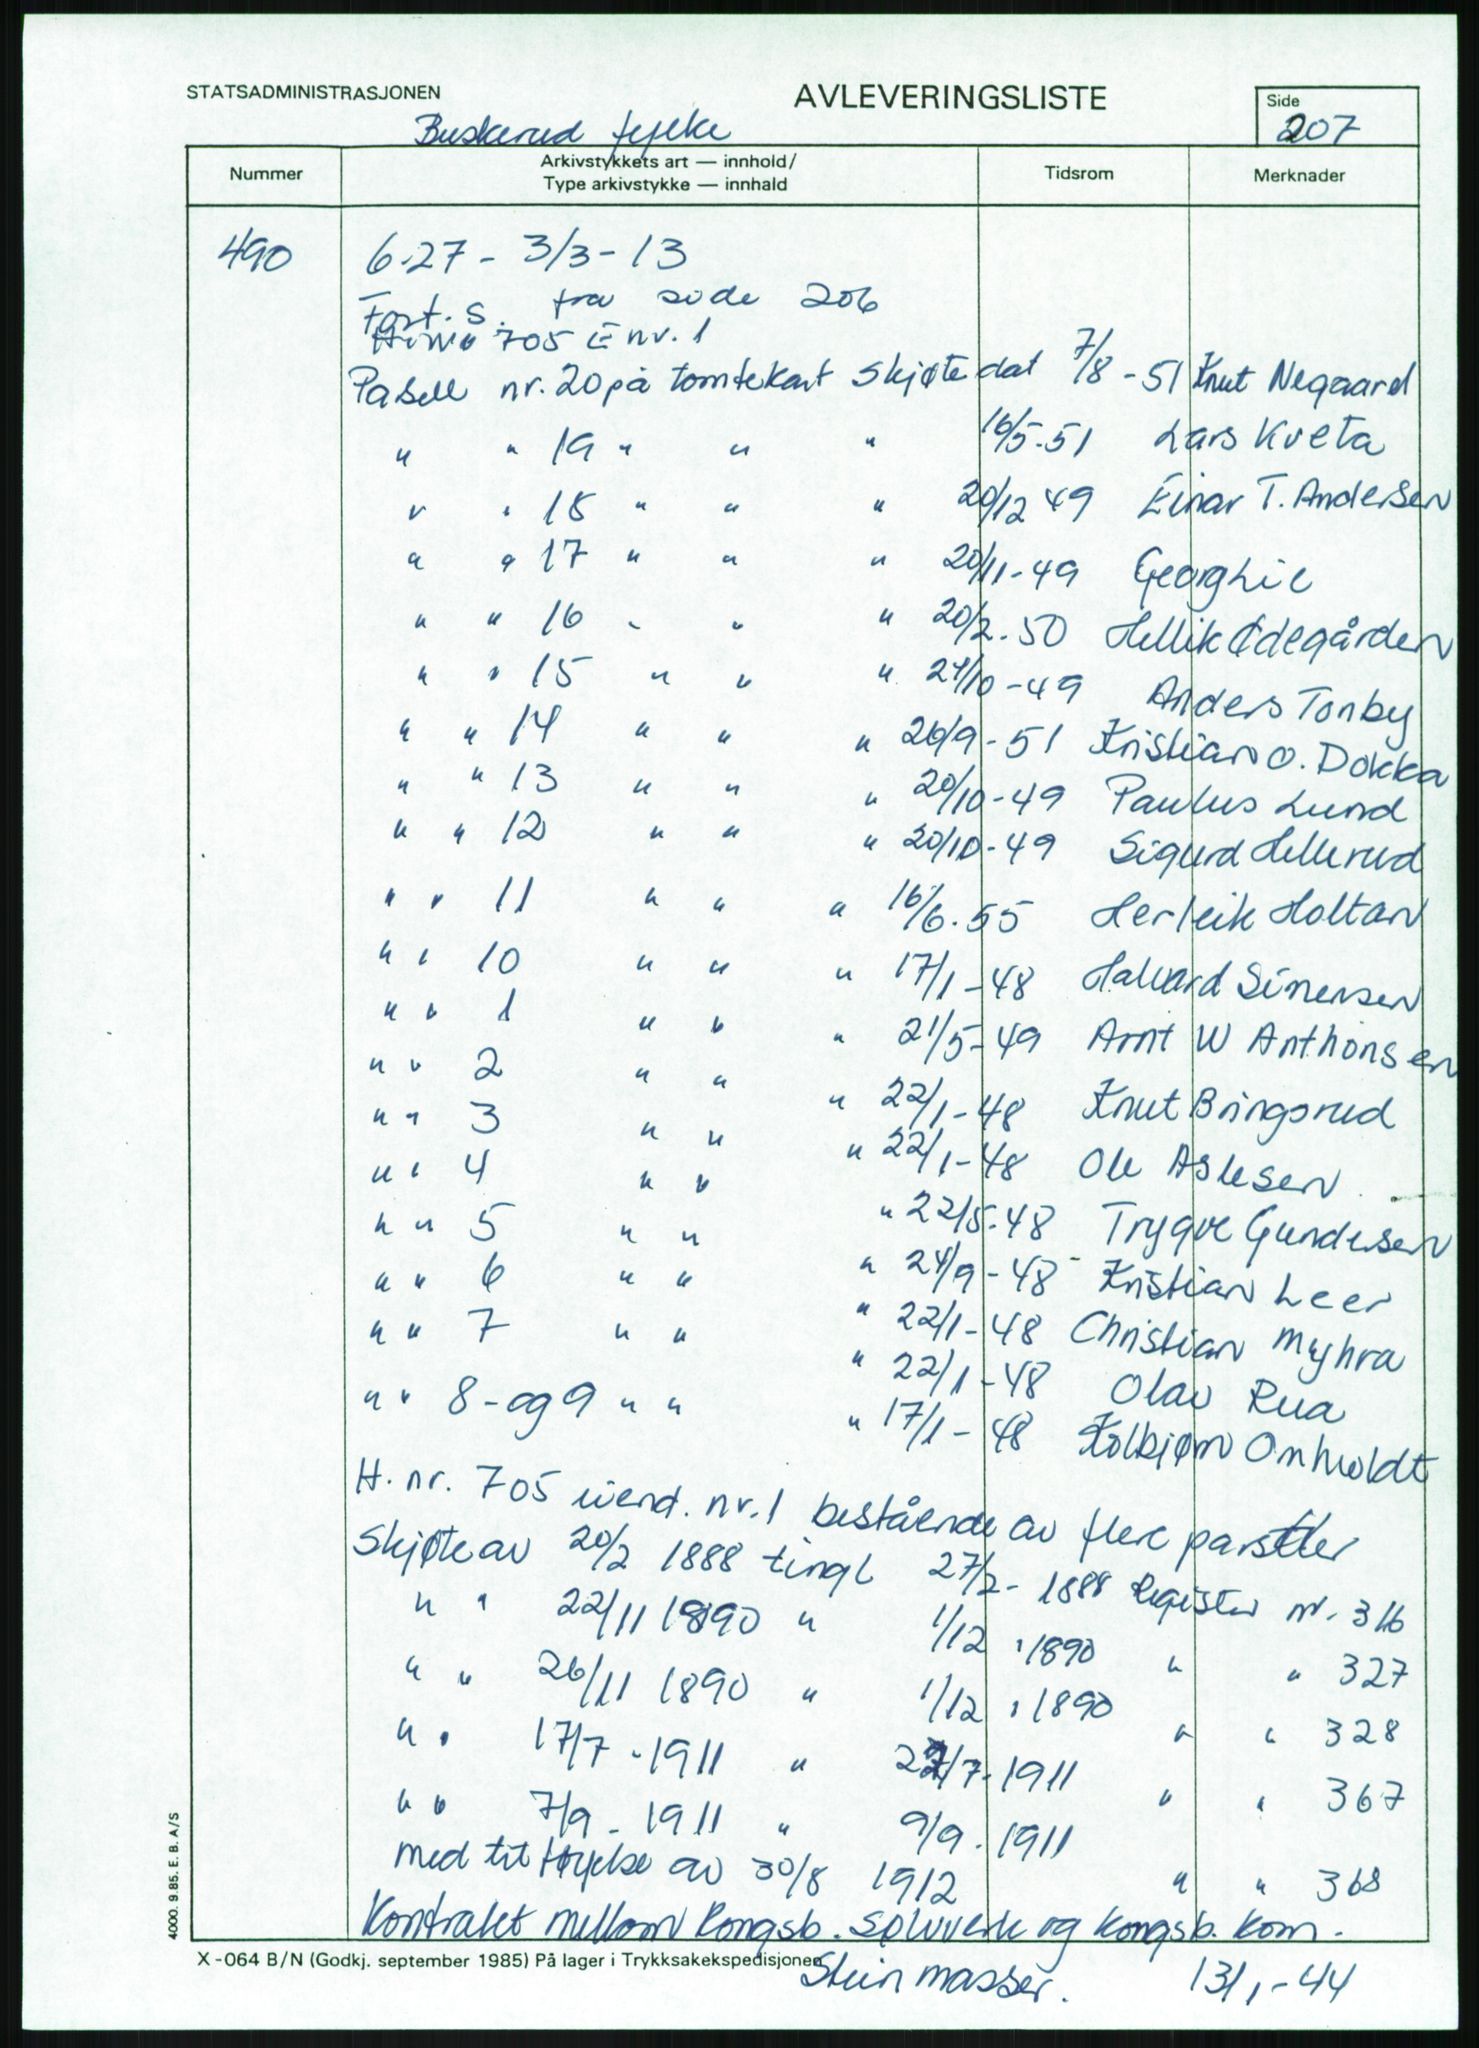 STATSADMINISTRASJONEN
AVLEVERINGSLISTE
Side
207
Buskerud fylke
Nummer
Arkivstykkets art — innhold/
Type arkivstykke — innhald
Tidsrom
Merknader
490
6.27 - 3/3 - 13
Fort. S. fra side 206
705 E nr. 1
Parsell nr. 20 på tomtekart skjøte dat 7/8 - 51 Knut Negaard
" " 19 " " " 16/5-51 Lars Kveta
" " 18 " " " 20/12 49 Einar T. Andersen
" " 17 " " " 20/11-49 Georg Lie
" " 16 " " " 20/2-50 Hellik Ødegården
" " 15 " " " 24/10-49 Anders Tonby
" " 14 " " " 26/9-51 Kristian O. Dokka
" " 13 " " " 20/10-49 Paulus Lund
" " 12 " " " 20/10-49 Sigurd Hellerud
" " 11 " " " 16/6-55 Herleik Holtan
" " 10 " " " 17/1-48 Halvard Simensen
" " 1 " " " 21/5-49 Arnt W Anthonsen
" " 2 " " " 22/1-48 Knut Bringsrud
" " 3 " " " 22/1-48 Ole Aslesen
" " 4 " " " 22/5-48 Trygve Gundersen
" " 5 " " " 24/9-48 Kristian Leer
" " 6 " " " 22/1-48 Christian Myhra
" " 7 " " " 22/1-48 Olav Rua
" " 8-og 9 " " " 17/1-48 Kolbjørn Omholdt
H. nr. 705 eiend. nr. 1 bestående av flere parseller
Skjøte av 20/2 1888 tingl 27/2-1888 Register nr. 316
" " 22/11 1890 " 1/12 1890 " " 327
" " 26/11 1890 " 1/12 1890 " " 328
" " 17/7-1911 " 22/7-1911 " " 367
" " 7/9-1911 " 9/9-1911
med tilføyelse av 30/8 1912 " " 368
Kontrakt mellom Kongsb. Sølvverk og Kongsb. Kom.
Steinmasser. 13/1-44
4000. 9.85. E. B. A/S
X-064 B/N (Godkj. september 1985) På lager i Trykksakekspedisjonen